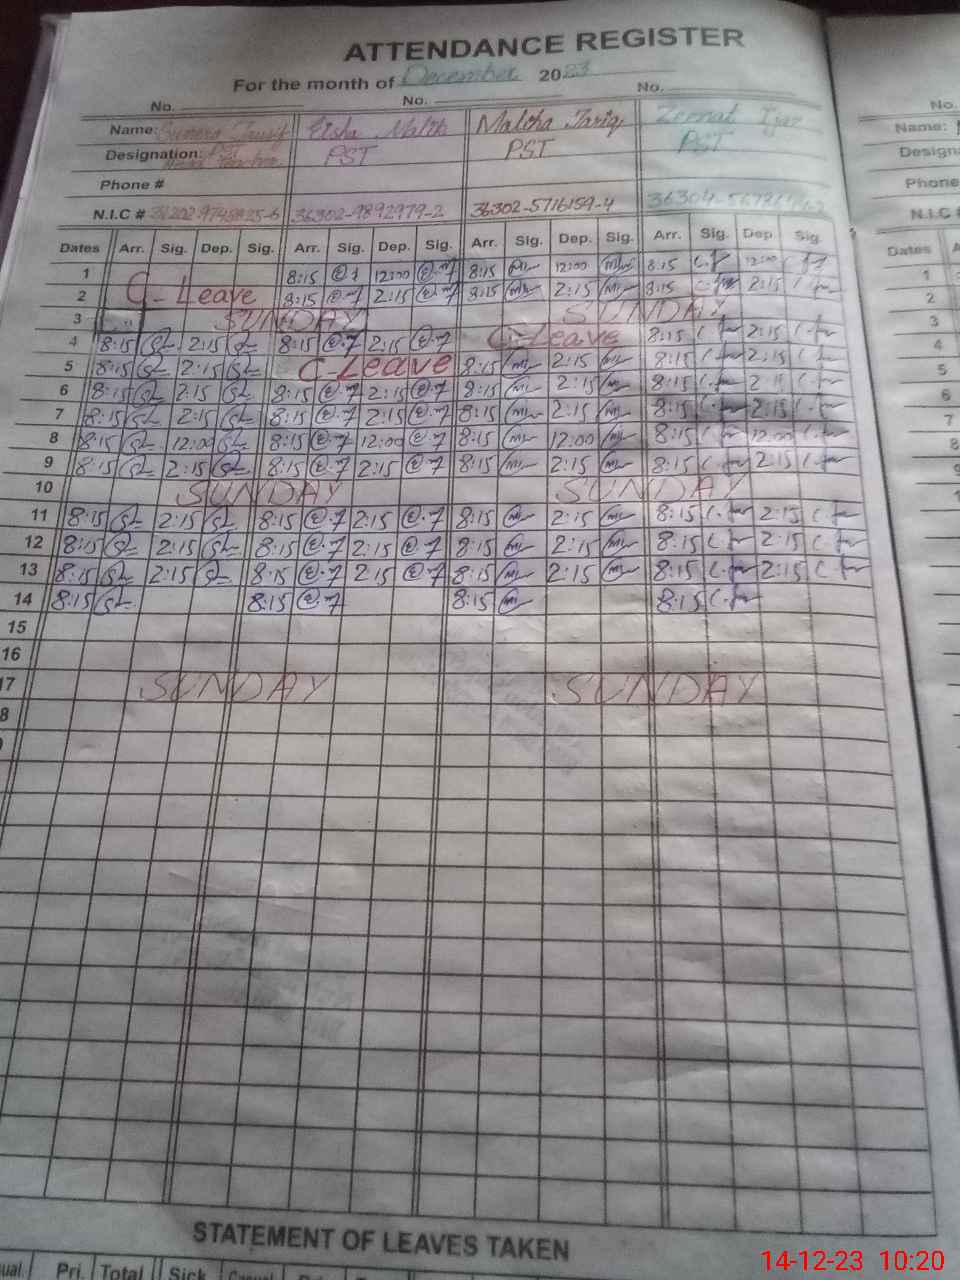 ATTENDANCE REGISTER
For the month of December 2023
No. No. No. No.
Name: Eisha Malik Maleha Tariq Zeenat
Designation: PST PST PST
Phone # Phone
N.I.C # 36302-9892979-2 36302-5716159-4 N.I.C #
Dates Arr. Sig. Dep. Sig. Arr. Sig. Dep. Sig. Arr. Sig. Dep. Sig. Arr. Sig. Dep. Sig. Dates
1 8:15 12:00 8:15 12:00 8:15 12:00 1
2 C-Leave 8:15 2:15 8:15 2:15 8:15 2:15 2
3 SUNDAY SUNDAY 3
4 8:15 2:15 8:15 2:15 C-Leave 8:15 2:15 4
5 8:15 2:15 C-Leave 8:15 2:15 8:15 2:15 5
6 8:15 2:15 8:15 2:15 8:15 2:15 8:15 2:15 6
7 8:15 2:15 8:15 2:15 8:15 2:15 8:15 2:15 7
8 8:15 12:00 8:15 12:00 8:15 12:00 8:15 12:00 8
9 8:15 2:15 8:15 2:15 8:15 2:15 8:15 2:15
10 SUNDAY SUNDAY
11 8:15 2:15 8:15 2:15 8:15 2:15 8:15 2:15
12 8:15 2:15 8:15 2:15 8:15 2:15 8:15 2:15
13 8:15 2:15 8:15 2 15 8:15 2:15 8:15 2:15
14 8:15 8:15 8:15 8:15
15
16
17 SUNDAY SUNDAY
8
STATEMENT OF LEAVES TAKEN
Pri. Total Sick Casual
14-12-23 10:20